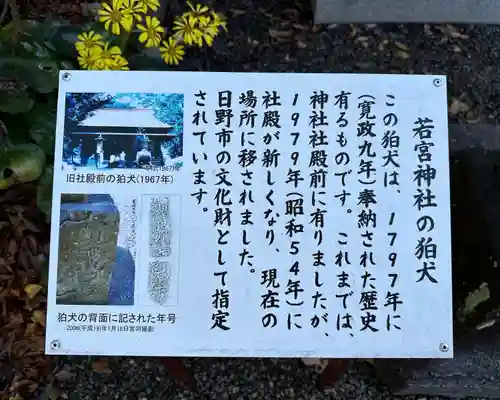 若宮神社の狛犬
この狛犬は、1797年に
(寛政九年)奉納された歴史
有るものです。これまでは、
神社社殿前に有りましたが、
1979年(昭和54年)に
社殿が新しくなり、現在の
場所に移されました。
日野市の文化財として指定
されています。
旧社殿の前の狛犬(1967年)
狛犬の背面に記された年号
2006(平成18)年1月15日宮司撮影